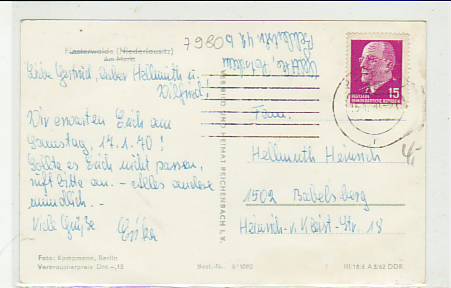 7980
Finsterwalde (Niederlausitz)
Am Markt
Liebe Gertrud, lieber Hellmuth u.
Wilfried!
Wir erwarten Euch am
Samstag, 17.1.70!
Sollte es Euch nicht passen,
ruft bitte an. – alles andere
mündlich. –
Viele Grüße
Erika
Foto: Kampmann, Berlin
Verbraucherpreis DM -,15
Best.-Nr.
VERLAG BILD UND HEIMAT REICHENBACH I. V.
15
DEUTSCHE
DEMOKRATISCHE REPUBLIK
Fam.
Hellmuth Heinrich
1502 Babelsberg
Heinrich-v. Kleist-Str. 18
4,-
III/18/6 A 5/62 DDR